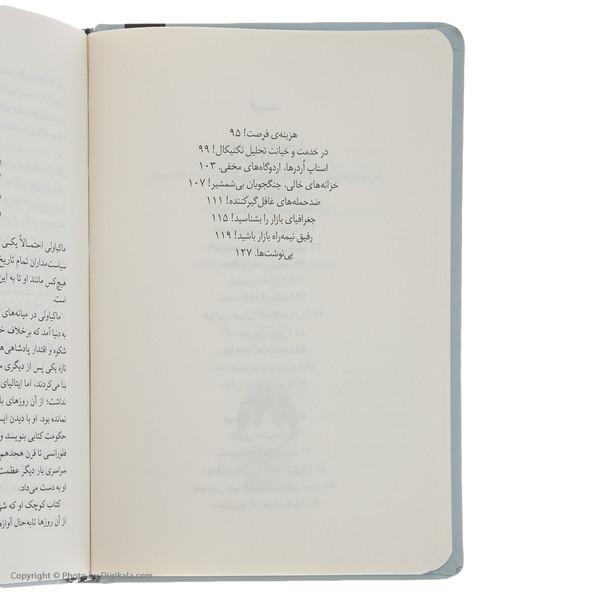 هزینه‌ی فرصت! ۹۵
در خدمت و خیانت تحلیل تکنیکال! ۹۹
استاپ اُردرها، اردوگاه‌های مخفی. ۱۰۳
خزانه‌های خالی، جنگجویان بی‌شمشیر! ۱۰۷
ضدحمله‌های غافل‌گیرکننده! ۱۱۱
جغرافیای بازار را بشناسید! ۱۱۵
رفیق نیمه‌راه بازار باشید! ۱۱۹
پی‌نوشت‌ها. ۱۲۷
ماکیاولی احتمالاً یکی
سیاست‌مداران تمام تاریخ
هیچ‌کس مانند او تا به این
است.
ماکیاولی در میانه‌های
به دنیا آمد که برخلاف
شکوه و اقتدار پادشاهی‌ها
تازه یکی پس از دیگری
بنا می‌کردند، اما ایتالیای
نداشت؛ از آن روزهای
نمانده بود. او با دیدن این
حکومت کتابی بنویسد و
فلورانسی تا قرن هجدهم
سراسری بار دیگر عظمت
او به دست می‌داد.
کتاب کوچک او که
از آن روزها تابه‌حال
Copyright © Photo by Digikala.com